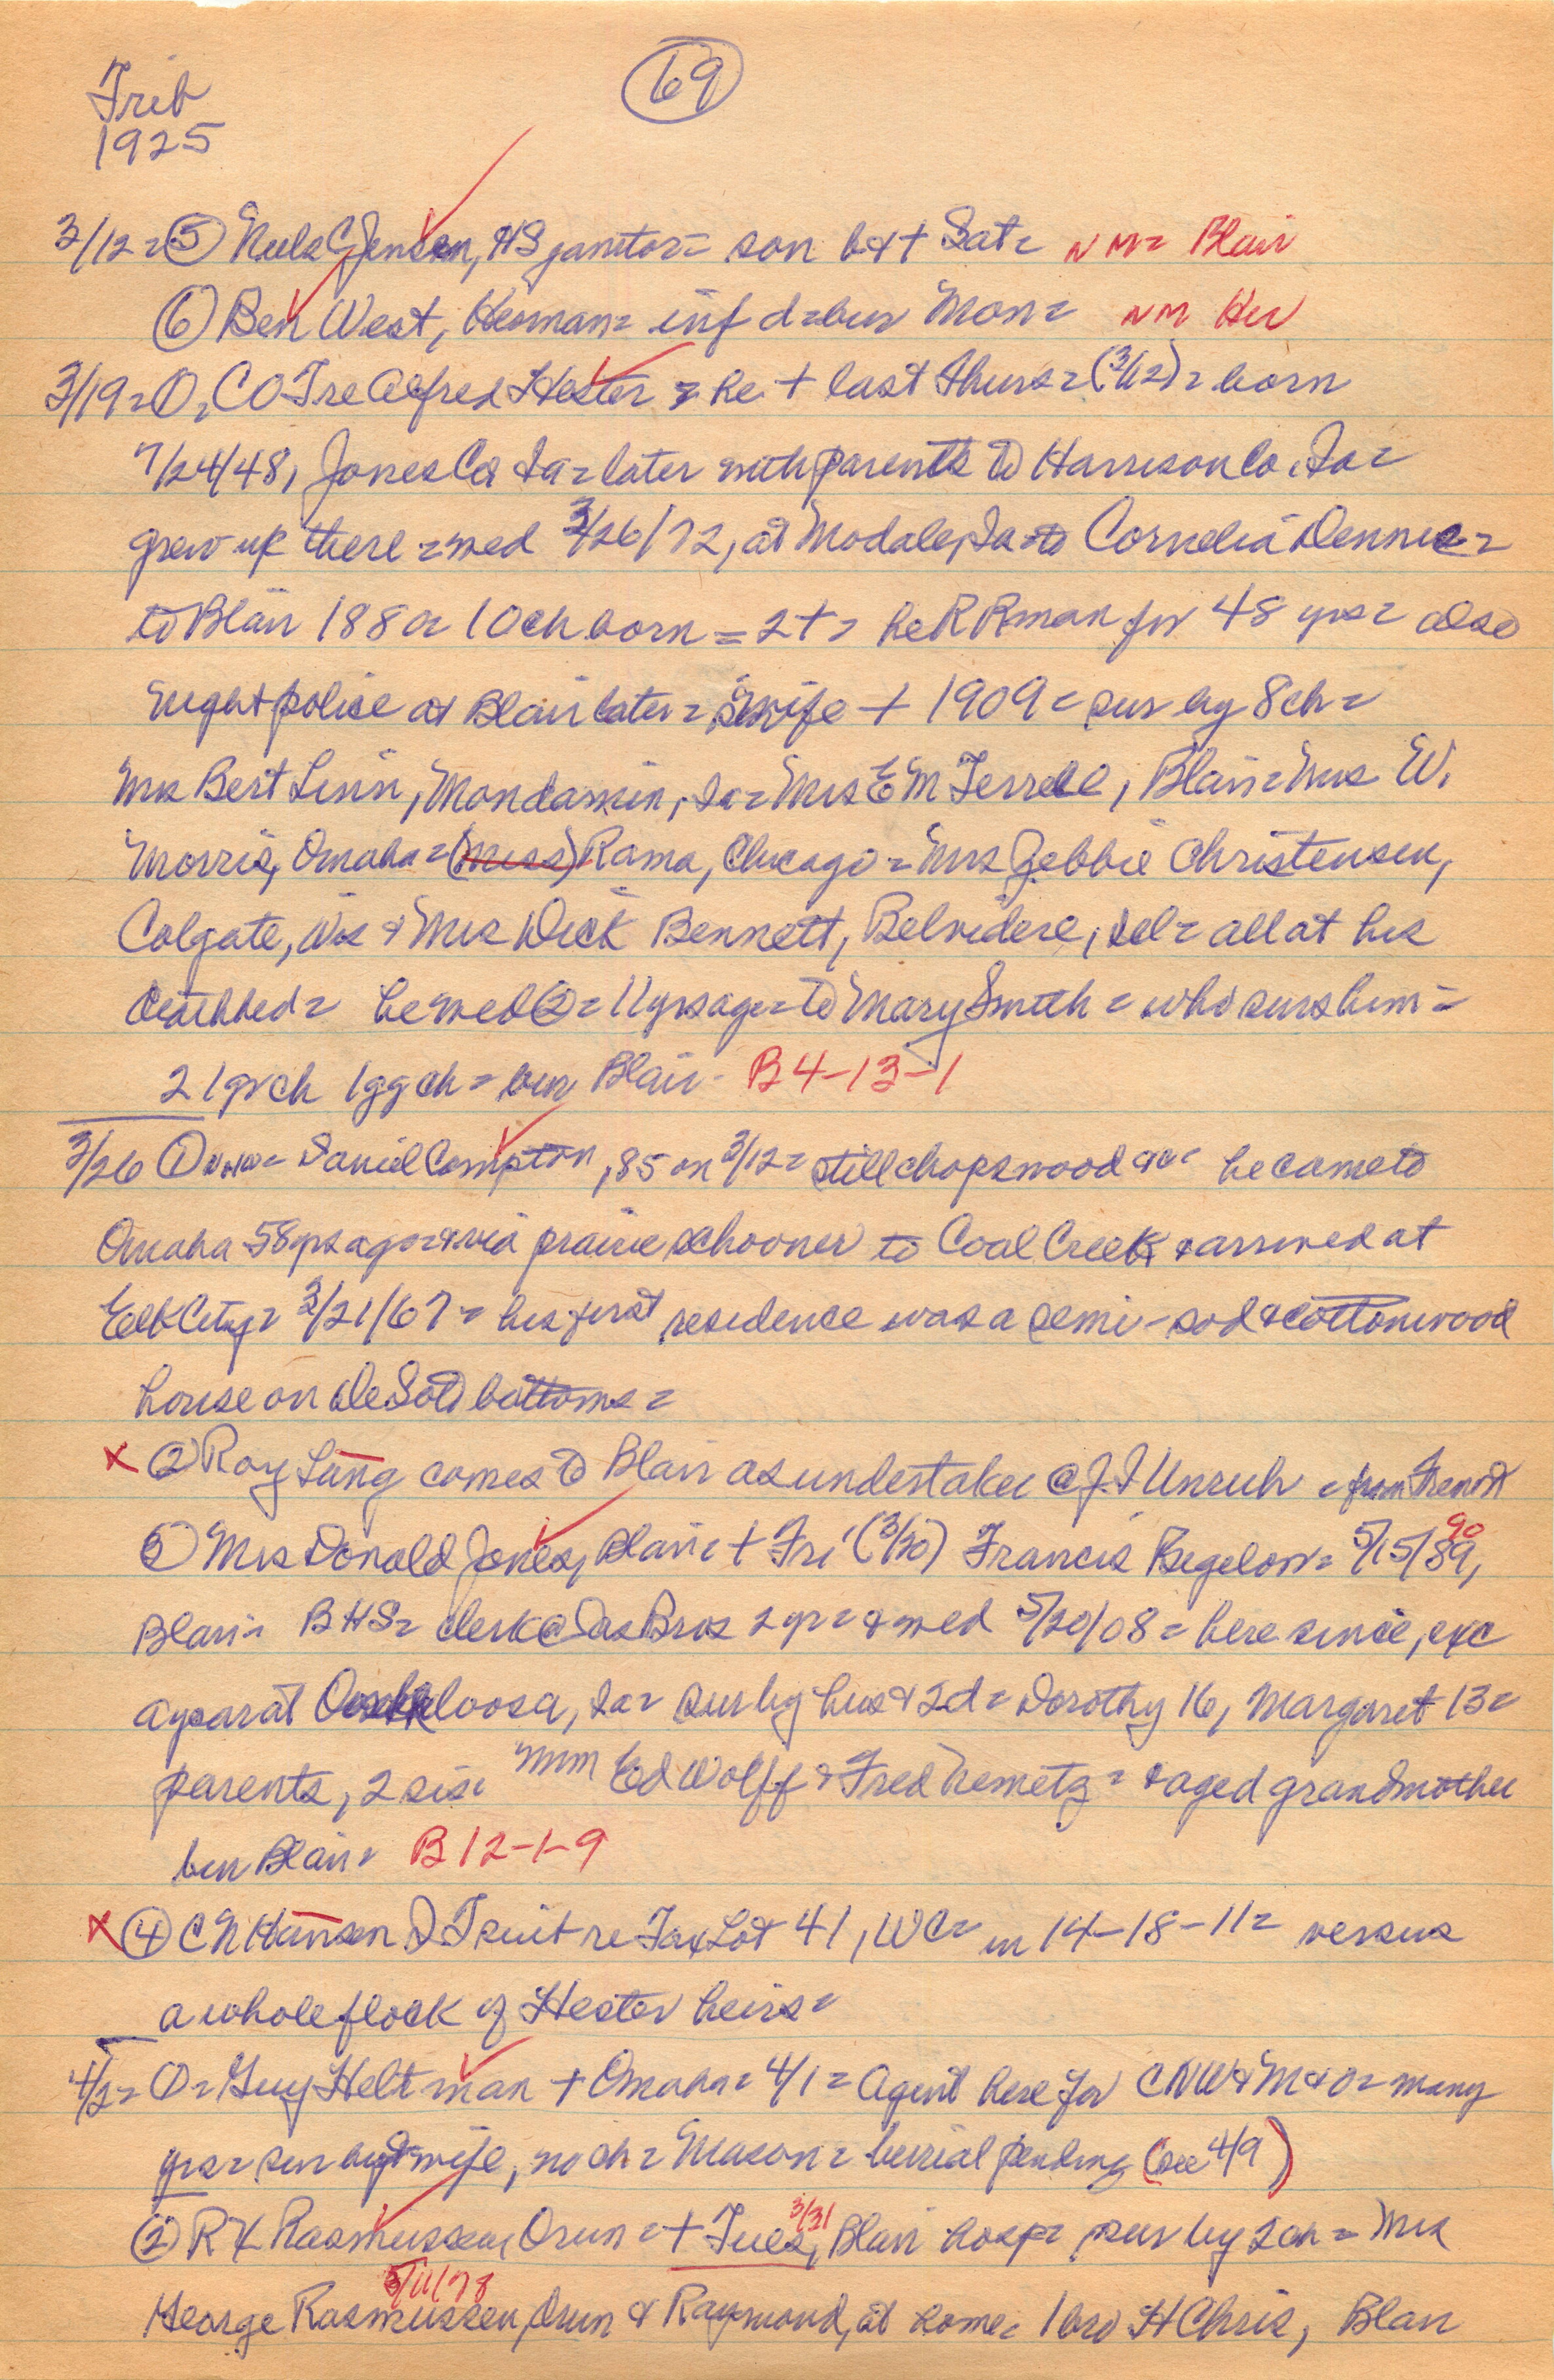 69
Trib
1925
3/12 = ⑤ Neils C Jensen, HS janitor = son b & + Sat = NM = Blair
⑥ Ben West, Herman = inf d = bur Mon = NM Her
3/19 = ①, C O T re Alfred Hester = he + last Thurs = (3/12) = born
7/24/48, Jones Co Ia = later with parents to Harrison Co. Ia =
grew up there = med 3/26/72, at Modale, Ia = to Cornelia Dennis =
to Blair 188 10 ch born = 2 + = he RR man for 48 yrs = also
night police at Blair later = wife + 1909 = sur by 8 ch =
Mrs Bert Linn, Mondamin, Ia = Mrs E M Terrell, Blair = Mrs W.
Morris, Omaha = (Miss) Rama, Chicago = Mrs Jebbie Christensen,
Colgate, Wis & Mrs Dick Bennett, Belvidere, Ill = all at his
deathbed = he med ② = 11 yrs ago = to Mary Smith = who surs him =
21 gr ch 1 gg ch = bur Blair - B 4-13-1
3/26 ① Daniel Compton, 85 on 3/12 = still chops wood he came to
Omaha 58 yrs ago = & via prairie schooner to Coal Creek & arrived at
Elk City = 3/21/67 = his first residence was a semi-sod & cottonwood
house on De Soto bottoms =
x ② Roy Lang comes to Blair as undertaker @ J. J Unruh = from Fremont
③ Mrs Donald Jones, Blair = + Fri (3/20) Francis Begelow = 5/15/89, 90
Blair = BHS = clerk @ Sas Bros 2 yr = & med 5/20/08 = here since, exc
a year at Oskaloosa, Ia = sur by hus & 2 d = Dorothy 16, Margaret 13 =
parents, 2 sis = MMM Ed Wolff & Fred Nemetz = & aged grandmother
bur Blair = B 12-1-9
x ④ C N Hansen Q T suit re Tax Lot 41, WC = in 14-18-11 = versus
a whole flock of Hester heirs =
4/2 = ① = Guy Heltman + Omaha = 4/1 = Agent here for CNW & M & O = many
yrs = sur by wife, no ch = Mason = burial pending (see 4/9)
② R K Rasmussen, Orum = + Tues, 3/31 Blair hosp = sur by 2 ch = Mrs
5/11/78
George Rasmussen, Orum & Raymond, at home = 1 bro H Chris, Blair